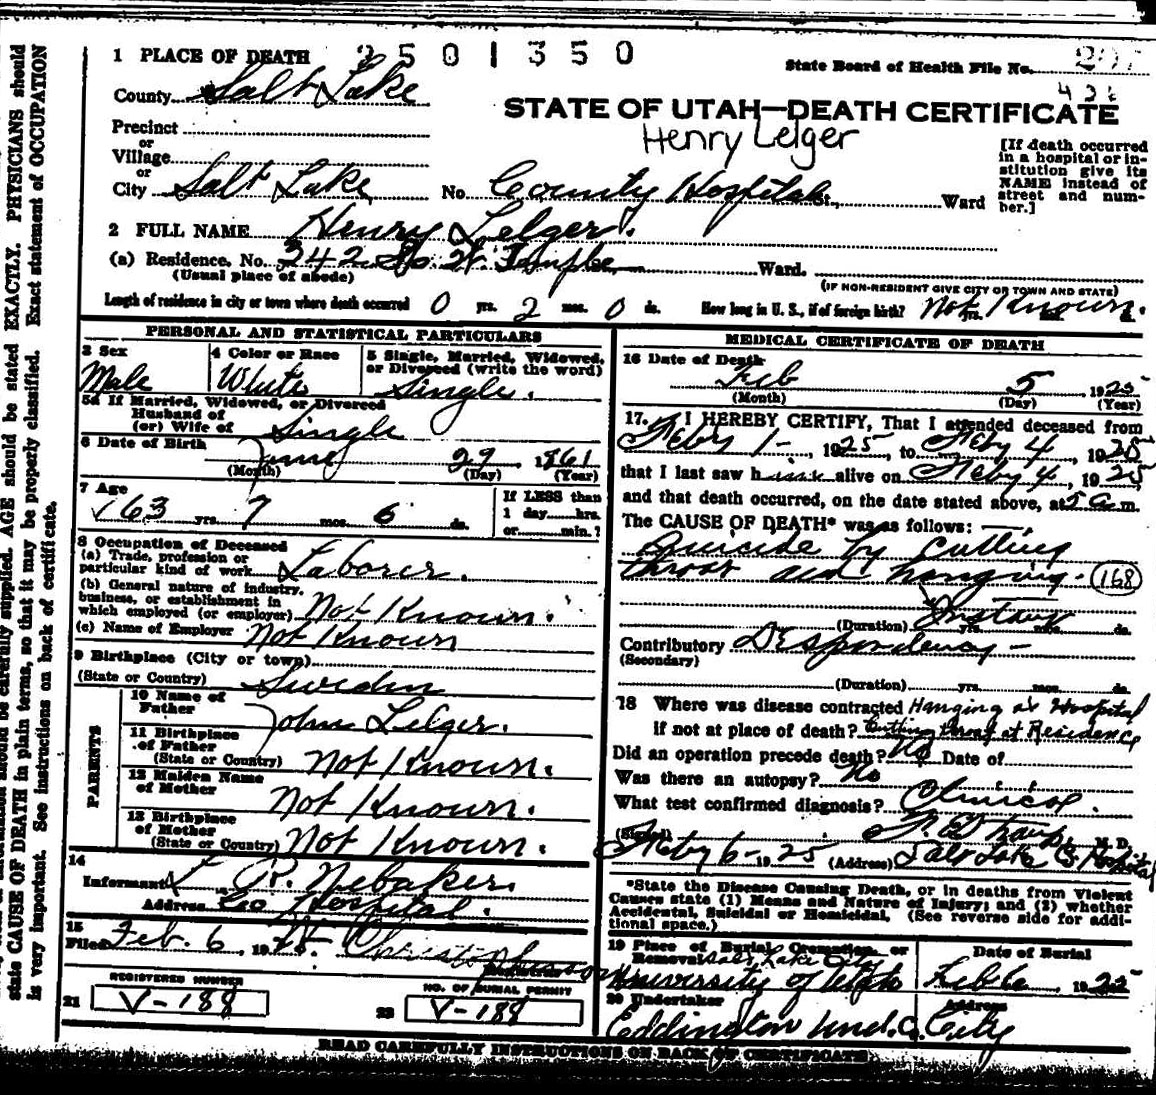 1 PLACE OF DEATH 2501350
State Board of Health File No.
County Salt Lake
STATE OF UTAH—DEATH CERTIFICATE
Henry Lelger
Precinct
or
Village
or
City Salt Lake No. County Hospital St., Ward
[If death occurred
in a hospital or in-
stitution give its
NAME instead of
street and num-
ber.]
2 FULL NAME Henry Lelger.
(a) Residence, No. 342 So. W. Temple Ward.
(Usual place of abode)
(IF NON-RESIDENT GIVE CITY OR TOWN AND STATE)
Length of residence in city or town where death occurred 0 yrs. 2 mos. 0 ds. How long in U. S., if of foreign birth? Not Known.
PERSONAL AND STATISTICAL PARTICULARS
3 Sex
Male
4 Color or Race
White
5 Single, Married, Widowed,
or Divorced (write the word)
Single.
5a If Married, Widowed, or Divorced
Husband of
(or) Wife of Single
6 Date of Birth
June 29, 1861
(Month) (Day) (Year)
7 Age
63 yrs. 7 mos. 6 ds.
If LESS than
1 day......hrs.
or......min.?
8 Occupation of Deceased
(a) Trade, profession or
particular kind of work Laborer.
(b) General nature of industry,
business, or establishment in
which employed (or employer) Not Known.
(c) Name of Employer Not Known
9 Birthplace (City or town)
(State or Country) Sweden
PARENTS
10 Name of
Father John Lelger.
11 Birthplace
of Father
(State or Country) Not Known.
12 Maiden Name
of Mother Not Known.
13 Birthplace
of Mother
(State or Country) Not Known.
14
Informant R. Nebaker.
Address Co Hospital.
15
Filed Feb. 6, 1925. Christopherson
REGISTERED NUMBER
21 V-188
NO. OF BURIAL PERMIT
22 V-188
MEDICAL CERTIFICATE OF DEATH
16 Date of Death
Feb 5 1925
(Month) (Day) (Year)
17. I HEREBY CERTIFY, That I attended deceased from
Feby 1-, 1925, to Feby 4, 1925
that I last saw him alive on Feby 4, 1925,
and that death occurred, on the date stated above, at 5 a m.
The CAUSE OF DEATH* was as follows:
Suicide by cutting
throat and hanging. 168
Instant
(Duration) yrs. mos. ds.
Contributory Despondency -
(Secondary)
(Duration) yrs. mos. ds.
18 Where was disease contracted Hanging at Hospital
if not at place of death? Cutting throat at Residence
Did an operation precede death? No Date of
Was there an autopsy? No
What test confirmed diagnosis? Clinical.
(Signed) M. D.
Feby 6-1925 (Address) Salt Lake Co. Hospital
*State the Disease Causing Death, or in deaths from Violent
Causes state (1) Means and Nature of Injury; and (2) whether
Accidental, Suicidal or Homicidal. (See reverse side for addi-
tional space.)
19 Place of Burial Cremation, or
Removal Salt Lake City
University of Utah
Date of Burial
Feb 6, 1925
20 Undertaker
Eddington Und. Co.
Address
City
READ CAREFULLY INSTRUCTIONS ON BACK OF CERTIFICATE
EXACTLY. PHYSICIANS should
Exact statement of OCCUPATION
AGE should be stated
properly classified.
carefully supplied.
so that it may be
state CAUSE OF DEATH in plain terms,
is very important. See instructions on back of certificate.